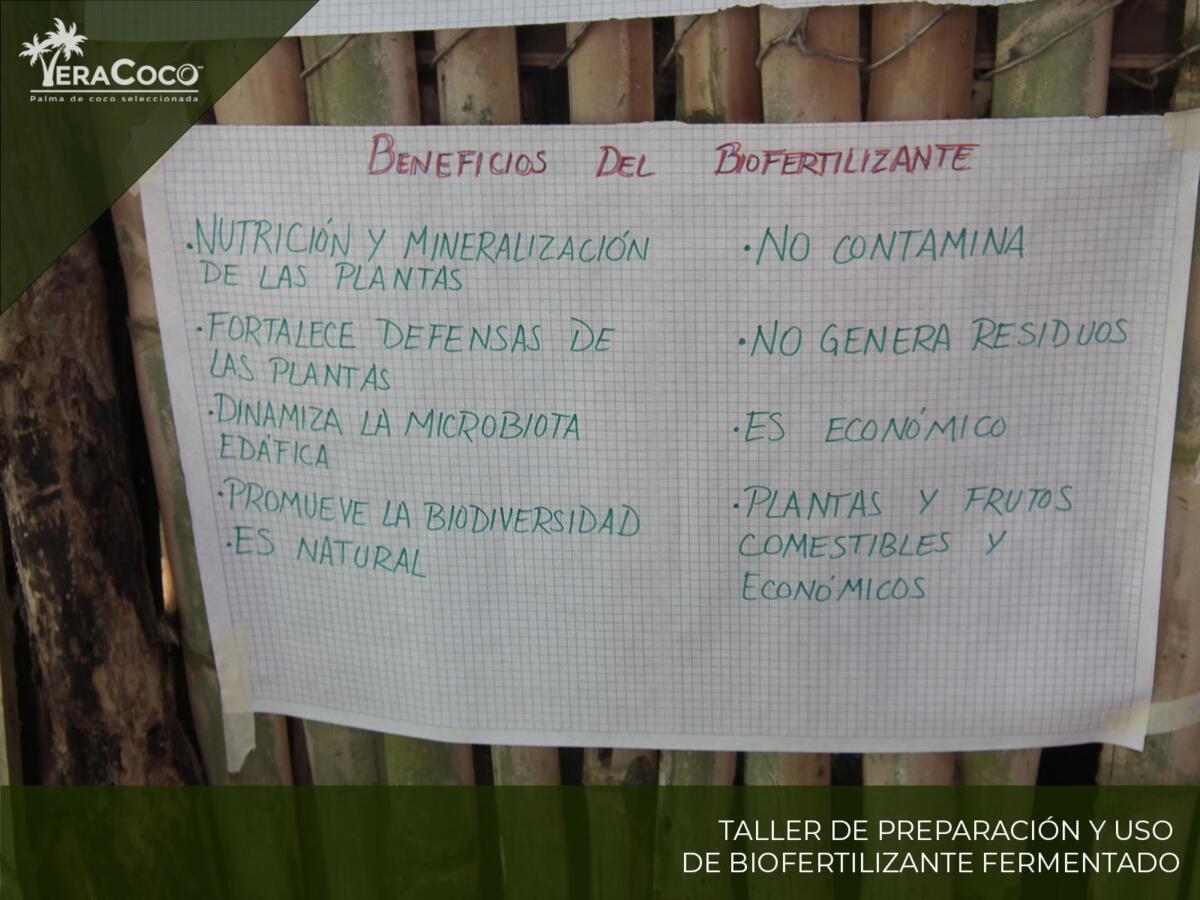 VERACOCO™
Palma de coco seleccionada
BENEFICIOS DEL BIOFERTILIZANTE
·NUTRICIÓN Y MINERALIZACIÓN
DE LAS PLANTAS
·FORTALECE DEFENSAS DE
LAS PLANTAS
·DINAMIZA LA MICROBIOTA
EDÁFICA
·PROMUEVE LA BIODIVERSIDAD
·ES NATURAL
·NO CONTAMINA
·NO GENERA RESIDUOS
·ES ECONÓMICO
·PLANTAS Y FRUTOS
COMESTIBLES Y
ECONÓMICOS
TALLER DE PREPARACIÓN Y USO
DE BIOFERTILIZANTE FERMENTADO